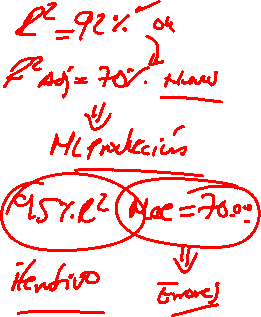 R² = 92% ok
R² Adj = 70%. Nuevo
ML Producción
95% R² Mae = 70.00
iterativo
Errores